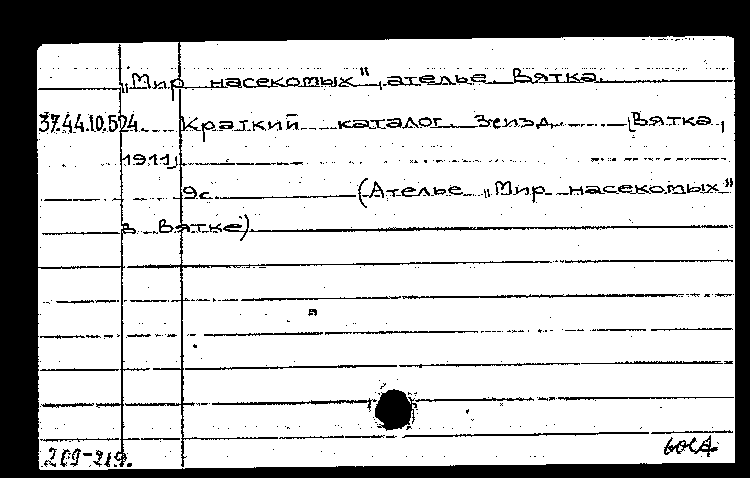 „Мир насекомых", ателье. Вятка.
37.44.10.524 Краткий каталог. 3е изд. [Вятка,
1911]
9с. (Ателье „Мир насекомых"
в Вятке).
209-219.